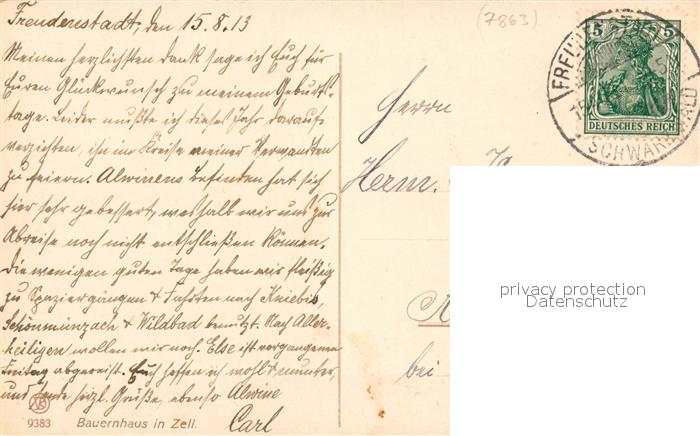 Freudenstadt, den 15.8.13
(7863)
Meinen herzlichsten Dank sage ich Euch für
Euren Glückwunsch zu meinem Geburts-
tage. Leider mußte ich dieses Jahr darauf
verzichten, ihn im Kreise meiner Verwandten
zu feiern. Alwinens Befinden hat sich
hier sehr gebessert, weshalb wir uns zur
Abreise noch nicht entschließen können.
Die wenigen guten Tage haben wir fleißig
zu Spaziergängen & Fahrten nach Kniebis,
Schönmünzach & Wildbad benutzt. Nach Aller-
heiligen wollen wir noch. Else ist vergangenen
Freitag abgereist. Euch hoffen ich wohl & munter,
und sende herzl. Grüße, ebenso Alwine
Carl
9383 Bauernhaus in Zell.
Herrn
Herm.
bei
5 5
DEUTSCHES REICH
SCHWARZWALD
privacy protection
Datenschutz